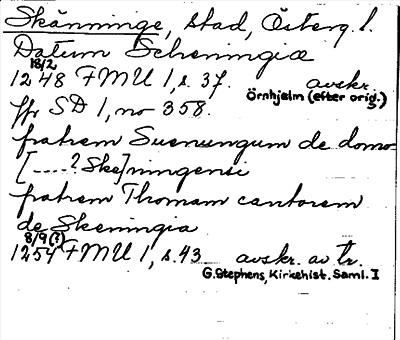 Skänninge, stad, Österg. l.
Datum Scheningiæ
18/2
1248 FMU 1, s. 37. avskr.
Örnhjelm (efter orig.)
jfr SD 1, no 358.
fratrem Suenungum de domo
[.....? Ske]ningensi
fratrem Thomam cantorem
de Skeningia
8/9(?)
1254 FMU 1, s. 43 avskr. av tr.
G. Stephens, Kirkehist. Saml. I